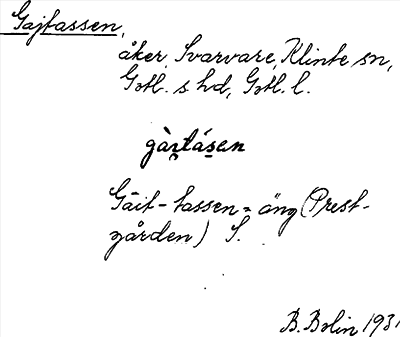 Gajtassen,
åker, Svarvare, Klinte sn,
Gotl. s hd, Gotl. l.
Gäit-tassen = äng (Prest-
gården) S.
B. Bolin 1931